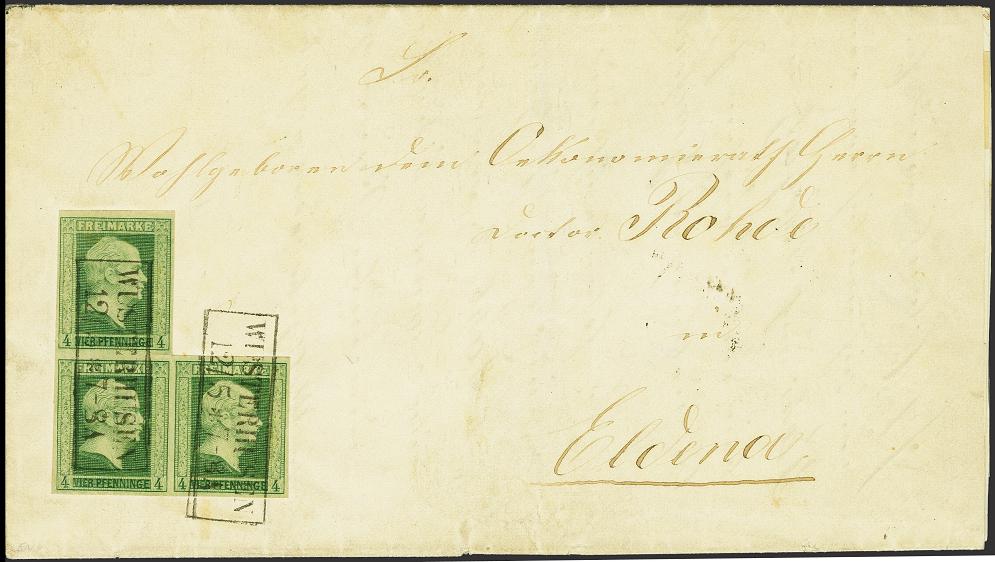 Sr.
Wohlgeboren dem Oekonomierath Herrn
Doctor Rohde
in
Eldena
FREIMARKE
4 VIER PFENNINGE 4
FREIMARKE
4 VIER PFENNINGE 4
FREIMARKE
4 VIER PFENNINGE 4
12 5 *